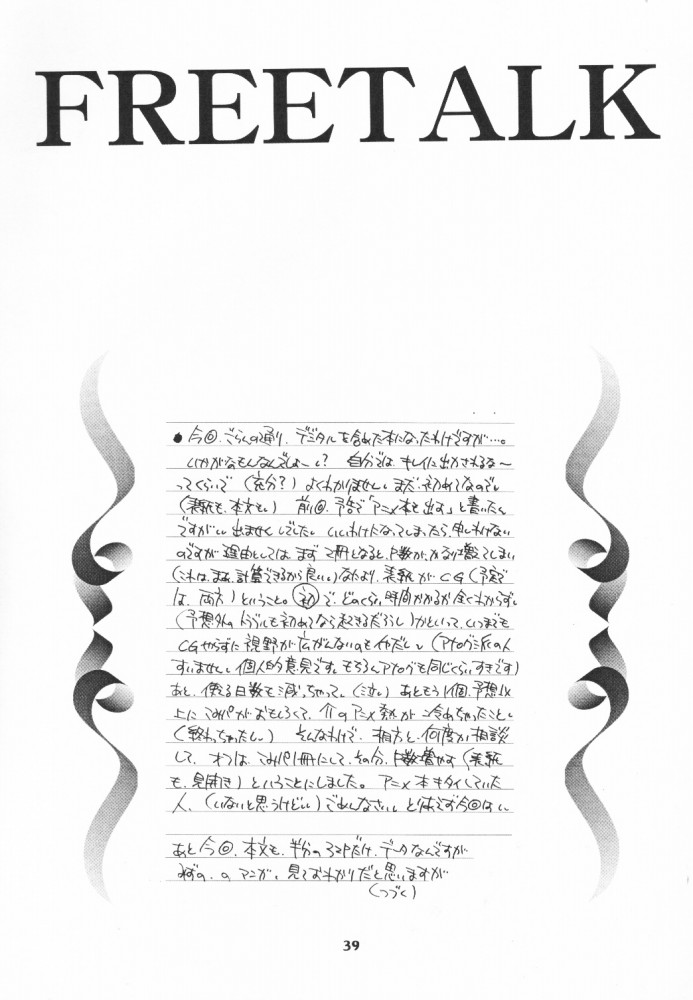 FREETALK
● 今回、ごらんの通り、デジタルを含めた本になったわけですが…。
いかがなもんなんでしょーい? 自分では、キレイに出かされるな〜
ってくらいで (充分?) よくわかりません。まだ初めてなので。
(表紙も、本文も。) 前回、予告で「アニメ本を出す」と書いたん
ですが、出ませんでした。いいわけになってしまったら、申しわけない
のですが 理由としては まず 2冊となると、上数が、かなり増えてしまい
(これは、まあ、計算できるから良い。) なにより、表紙が CG (予定で
は、両方) ということ。初で、どのくらい時間かかるか全くわからず。
(予想外のトラブルも初めてなら起きるだろうし) かといって、いつまでも
CGやらずに視野が広がんないのもイヤだし。(アナログ派の人
すいません。個人的意見です。もちろんアナログも同じくらいすきです)
あと、使える日数も減っちゃって。(泣) あともう1個、予想以
上に こみパがおもしろくて、 のアニメ熱が 冷めちゃったこと。
(終わっちゃたし。) そんなわけで、相方と、何度か相談
して、 こみパ1冊にして、その分、上数増やす (表紙
も、見開き) ということにしました。アニメ本キタイしていた
人、(いないと思うけどい) ごめんなさい。とりあえず今回はい
あと今回、本文も、半分の だけ、データなんですが
の マンガ、見ておわかりだと思いますが
(つづく)
39